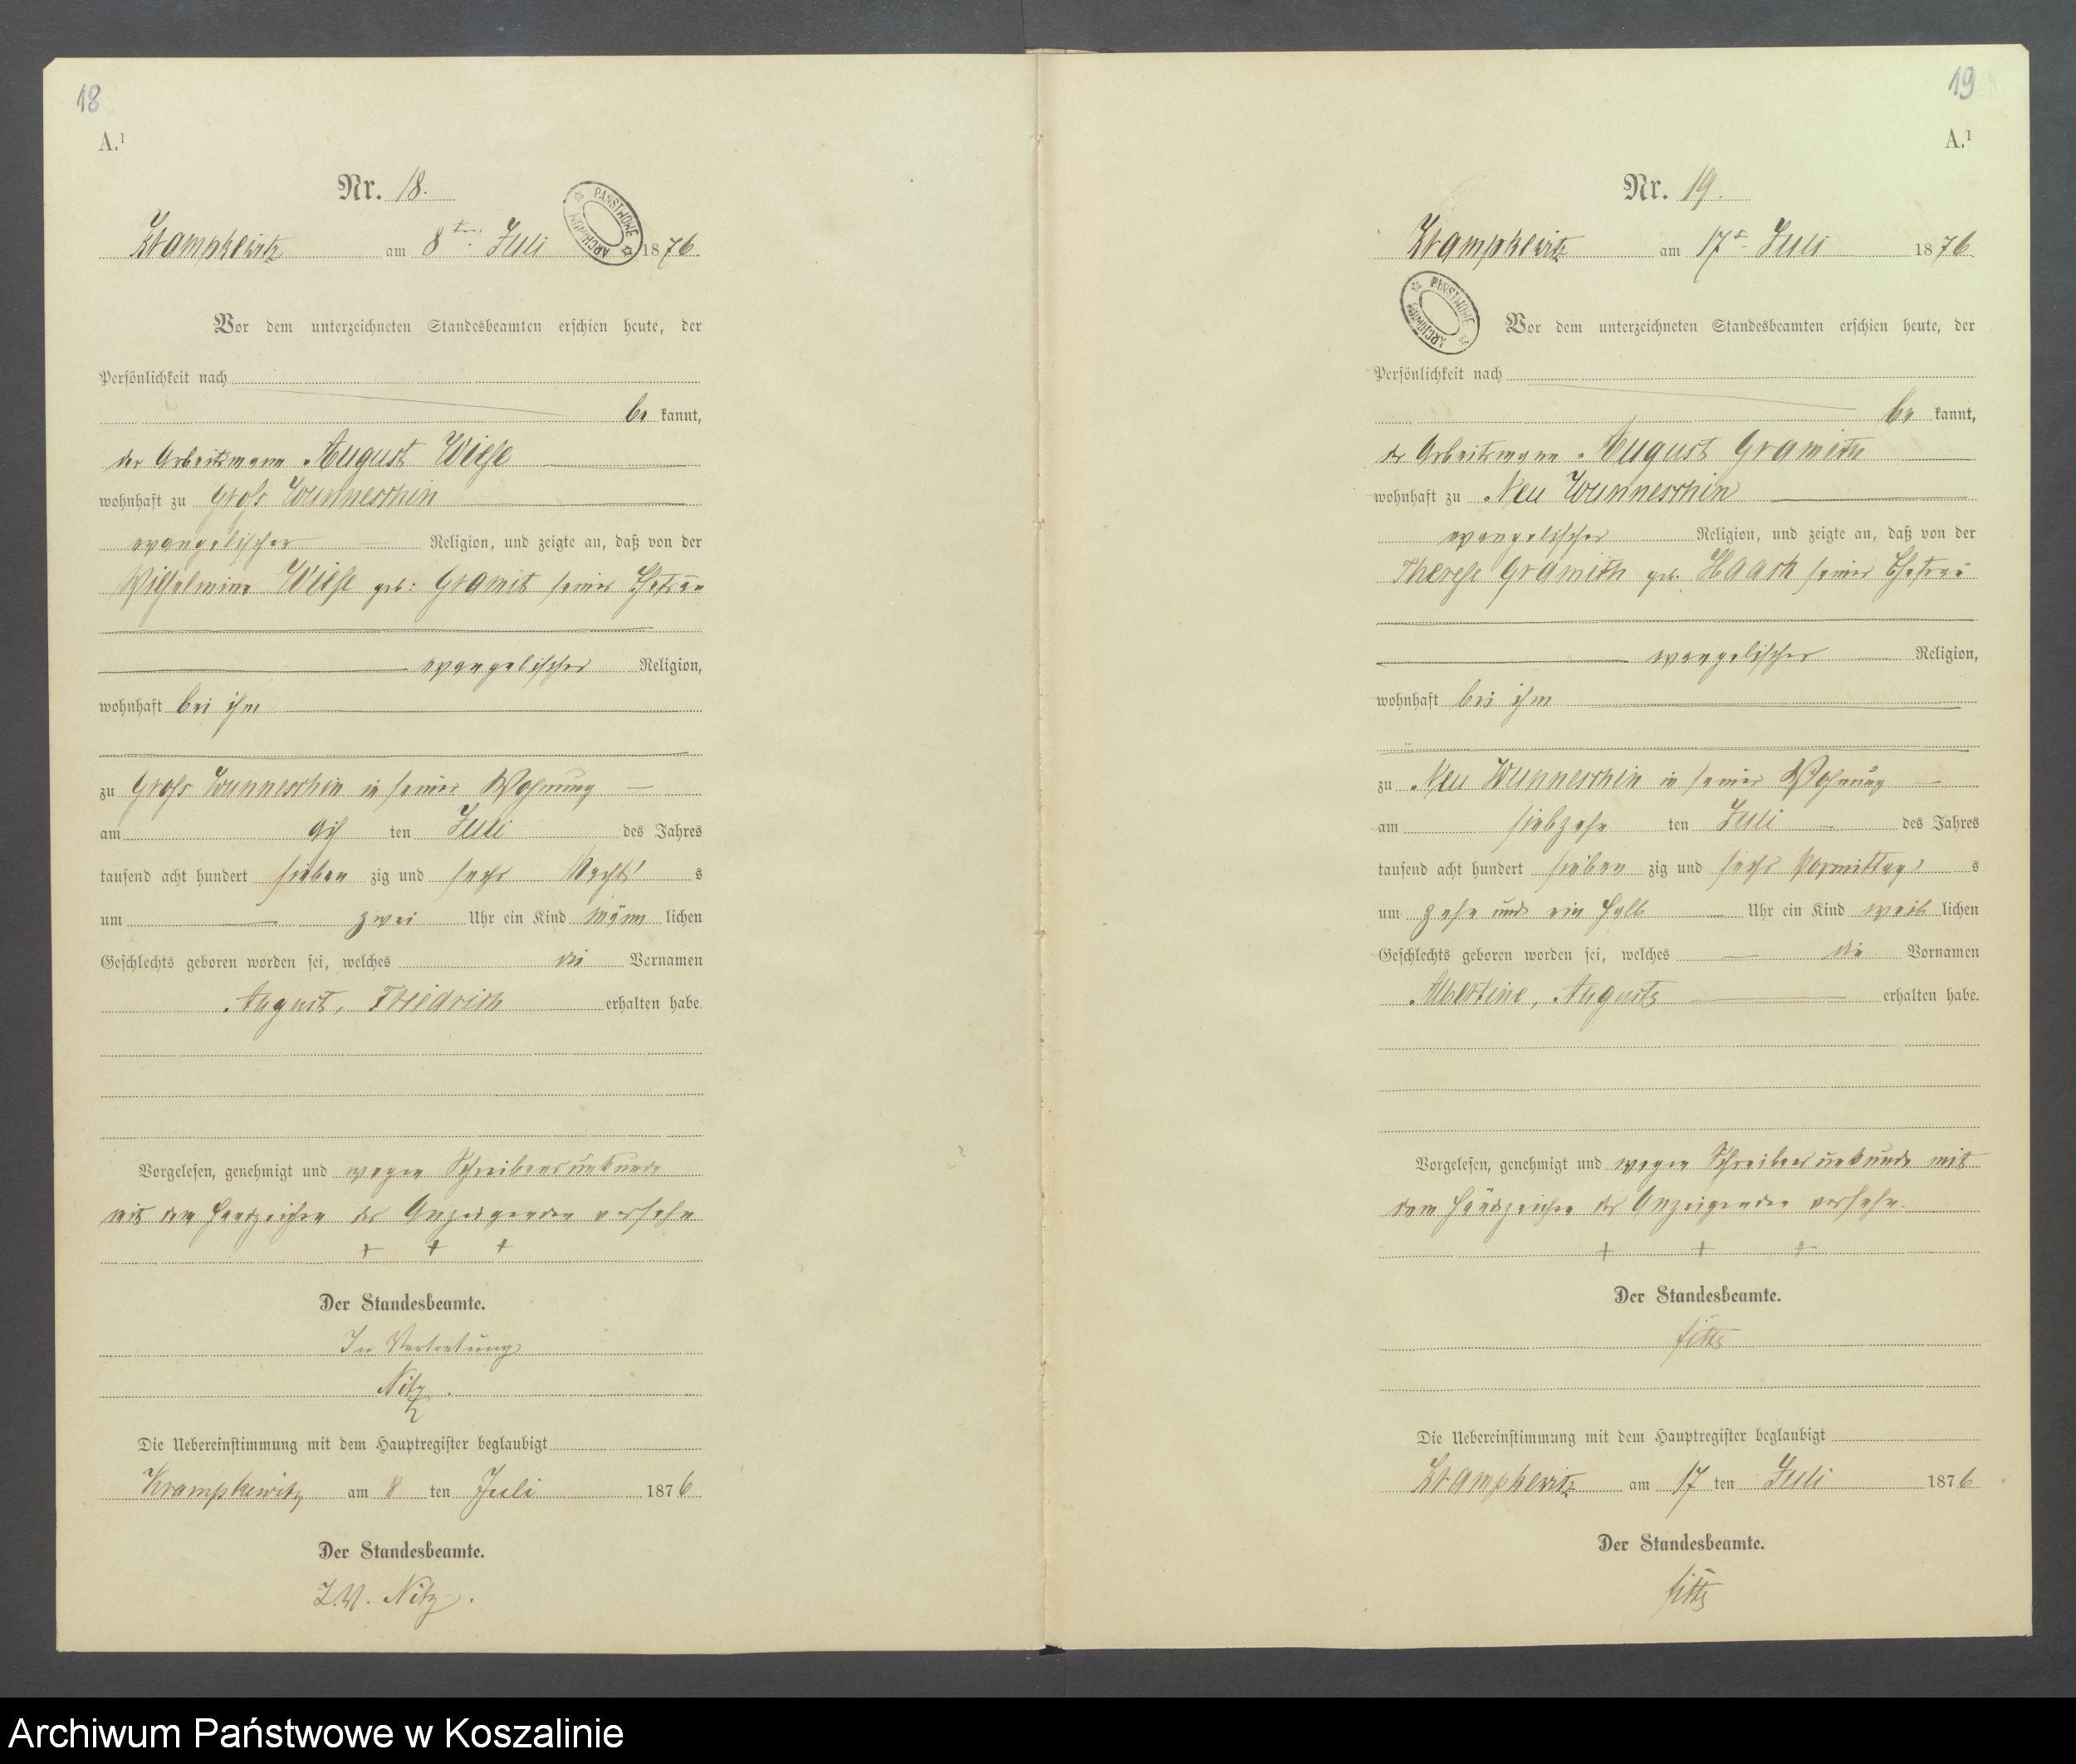 18
A.¹
Nr. 18.
Krampkewitz am 8ten Juli 1876.
PANSTWOWE ARCHIWUM
Vor dem unterzeichneten Standesbeamten erschien heute, der
Persönlichkeit nach
be kannt,
der Arbeitsmann August Wiese
wohnhaft zu Groß Wunneschin
evangelischer Religion, und zeigte an, daß von der
Wilhelmine Wiese geb: Gramit seiner Ehefrau
evangelischer Religion,
wohnhaft bei ihm
zu Groß Wunneschin in seiner Wohnung
am ach ten Juli des Jahres
tausend acht hundert sieben zig und sechs Nachts s
um zwei Uhr ein Kind männ lichen
Geschlechts geboren worden sei, welches die Vornamen
August, Friedrich erhalten habe.
Vorgelesen, genehmigt und wegen Schreibensunkunde
mit dem Handzeichen des Anzeigenden versehn
+ + +
Der Standesbeamte.
In Vertretung
Nitz.
Die Uebereinstimmung mit dem Hauptregister beglaubigt
Krampkewitz am 8 ten Juli 1876
Der Standesbeamte.
I.V. Nitz.
19
A.¹
Nr. 19.
Krampkewitz am 17t. Juli 1876
PANSTWOWE ARCHIWUM
Vor dem unterzeichneten Standesbeamten erschien heute, der
Persönlichkeit nach
be kannt,
der Arbeitsmann August Gramith
wohnhaft zu Neu Wunneschin
evangelischer Religion, und zeigte an, daß von der
Therese Gramith geb. Haach seiner Ehefrau
evangelischer Religion,
wohnhaft bei ihm
zu Neu Wunneschin in seiner Wohnung
am siebzehn ten Juli des Jahres
tausend acht hundert sieben zig und sechs Vormittag s
um zehn und ein halb Uhr ein Kind weib lichen
Geschlechts geboren worden sei, welches die Vornamen
Albertine, Auguste erhalten habe.
Vorgelesen, genehmigt und wegen Schreibensunkunde mit
dem Handzeichen des Anzeigenden versehn.
+ + +
Der Standesbeamte.
Die Uebereinstimmung mit dem Hauptregister beglaubigt
Krampkewitz am 17 ten Juli 1876
Der Standesbeamte.
Archiwum Państwowe w Koszalinie